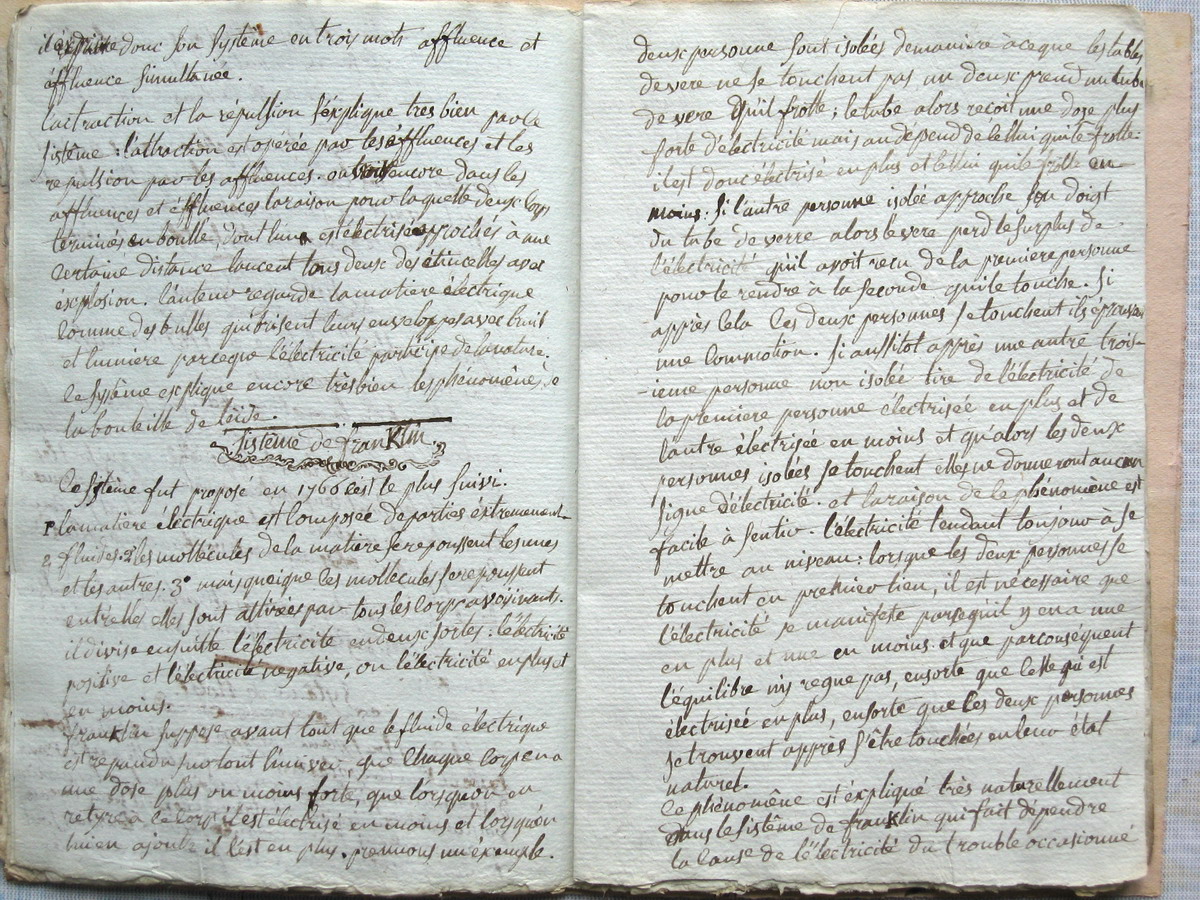 il explique donc son système en trois mots affluence et
éffluence simultanée.
l'actraction et la répullsion s'éxplique tres bien par ce
sistême : l'athraction est opérée par les éffluences et les
repullsion par les affluences. on voit encore dans les
affluences et éffluences la raison pour laquelle deux corps
terminés en boulle, dont l'un est électrisé approchés à une
certaine distance lancent tous deux des étincelles avec
éxcplosion. l'auteur regarde la matiere électrique
comme des bulles qui brisent leurs enveloppes avec bruit
et lumiere parceque l'électricité participe de la nature.
ce système explique encore très bien les phénomènes de
la bouteille de leide.
sistême de franklin
Ce système fut proposé en 1766 c'est le plus suivi.
1° la matière électrique est composée de parties éxtremement
2 fluides. 2° les mollécules de la matiere se repoussent les unes
et les autres. 3° mais quoique les mollecules se repoussent
entr'elles elles sont attirées par tous les corps avoisinants.
il divise ensuitte l'éléctricité en deux sortes : l'électricité
positive et l'électricité négative, ou l'électricité en plus et
en moins.
franklin suppose avant tout que le fluide électrique
est repandu sur tout l'univer, que chaque corp en a
une dose plus ou moins forte, que lorsqu'on en
retire à ce corp il est électrisé en moins et lorsqu'on
lui en ajoute il l'est en plus. prennons un éxemple.
deux personne sont isolées de maniere à ce que les tables
de vere ne se touchent pas un deux prend un tube
de vere qu'il frotte ; le tube alors recoit une dose plus
forte d'électricité mais au depend de cellui qui le frotte :
il est donc électrisé en plus et cellui qui le frotte en
moins. si l'autre personne isolée approche son doigt
du tube de verre alors le vere perd le surplus de
l'électricité qu'il avoit recu de la premiere personne
pour le rendre à la seconde qui le touche. Si
apprès cela ces deux personnes se touchent ils éprouvent
une commotion. si aussitot apprès une autre trois-
-ieme personne non isolée tire de l'électricité de
la premiere personne électrisée en plus et de
l'autre électrisée en moins et qu'alors les deux
personnes isolées se touchent elles ne donneront aucun
signe d'électricité. et la raison de ce phénomène est
facile à sentir. l'électricité tendant toujour à se
mettre au niveau : lorsque les deux personnes se
touchent en premier lieu, il est nécessaire que
l'électricité se manifeste parsequ'il y en a une
en plus et une en moins. et que par conséquent
l'équilibre n'y regne pas, ensorte que celle qui est
électrisée en plus, ensorte que les deux personnes
se trouvent apprès s'être touchées en leur état
naturel.
ce phénomène est éxpliqué très naturellement
dans le sistême de franklin qui fait dépendre
la cause de l'électricité du trouble occasionné